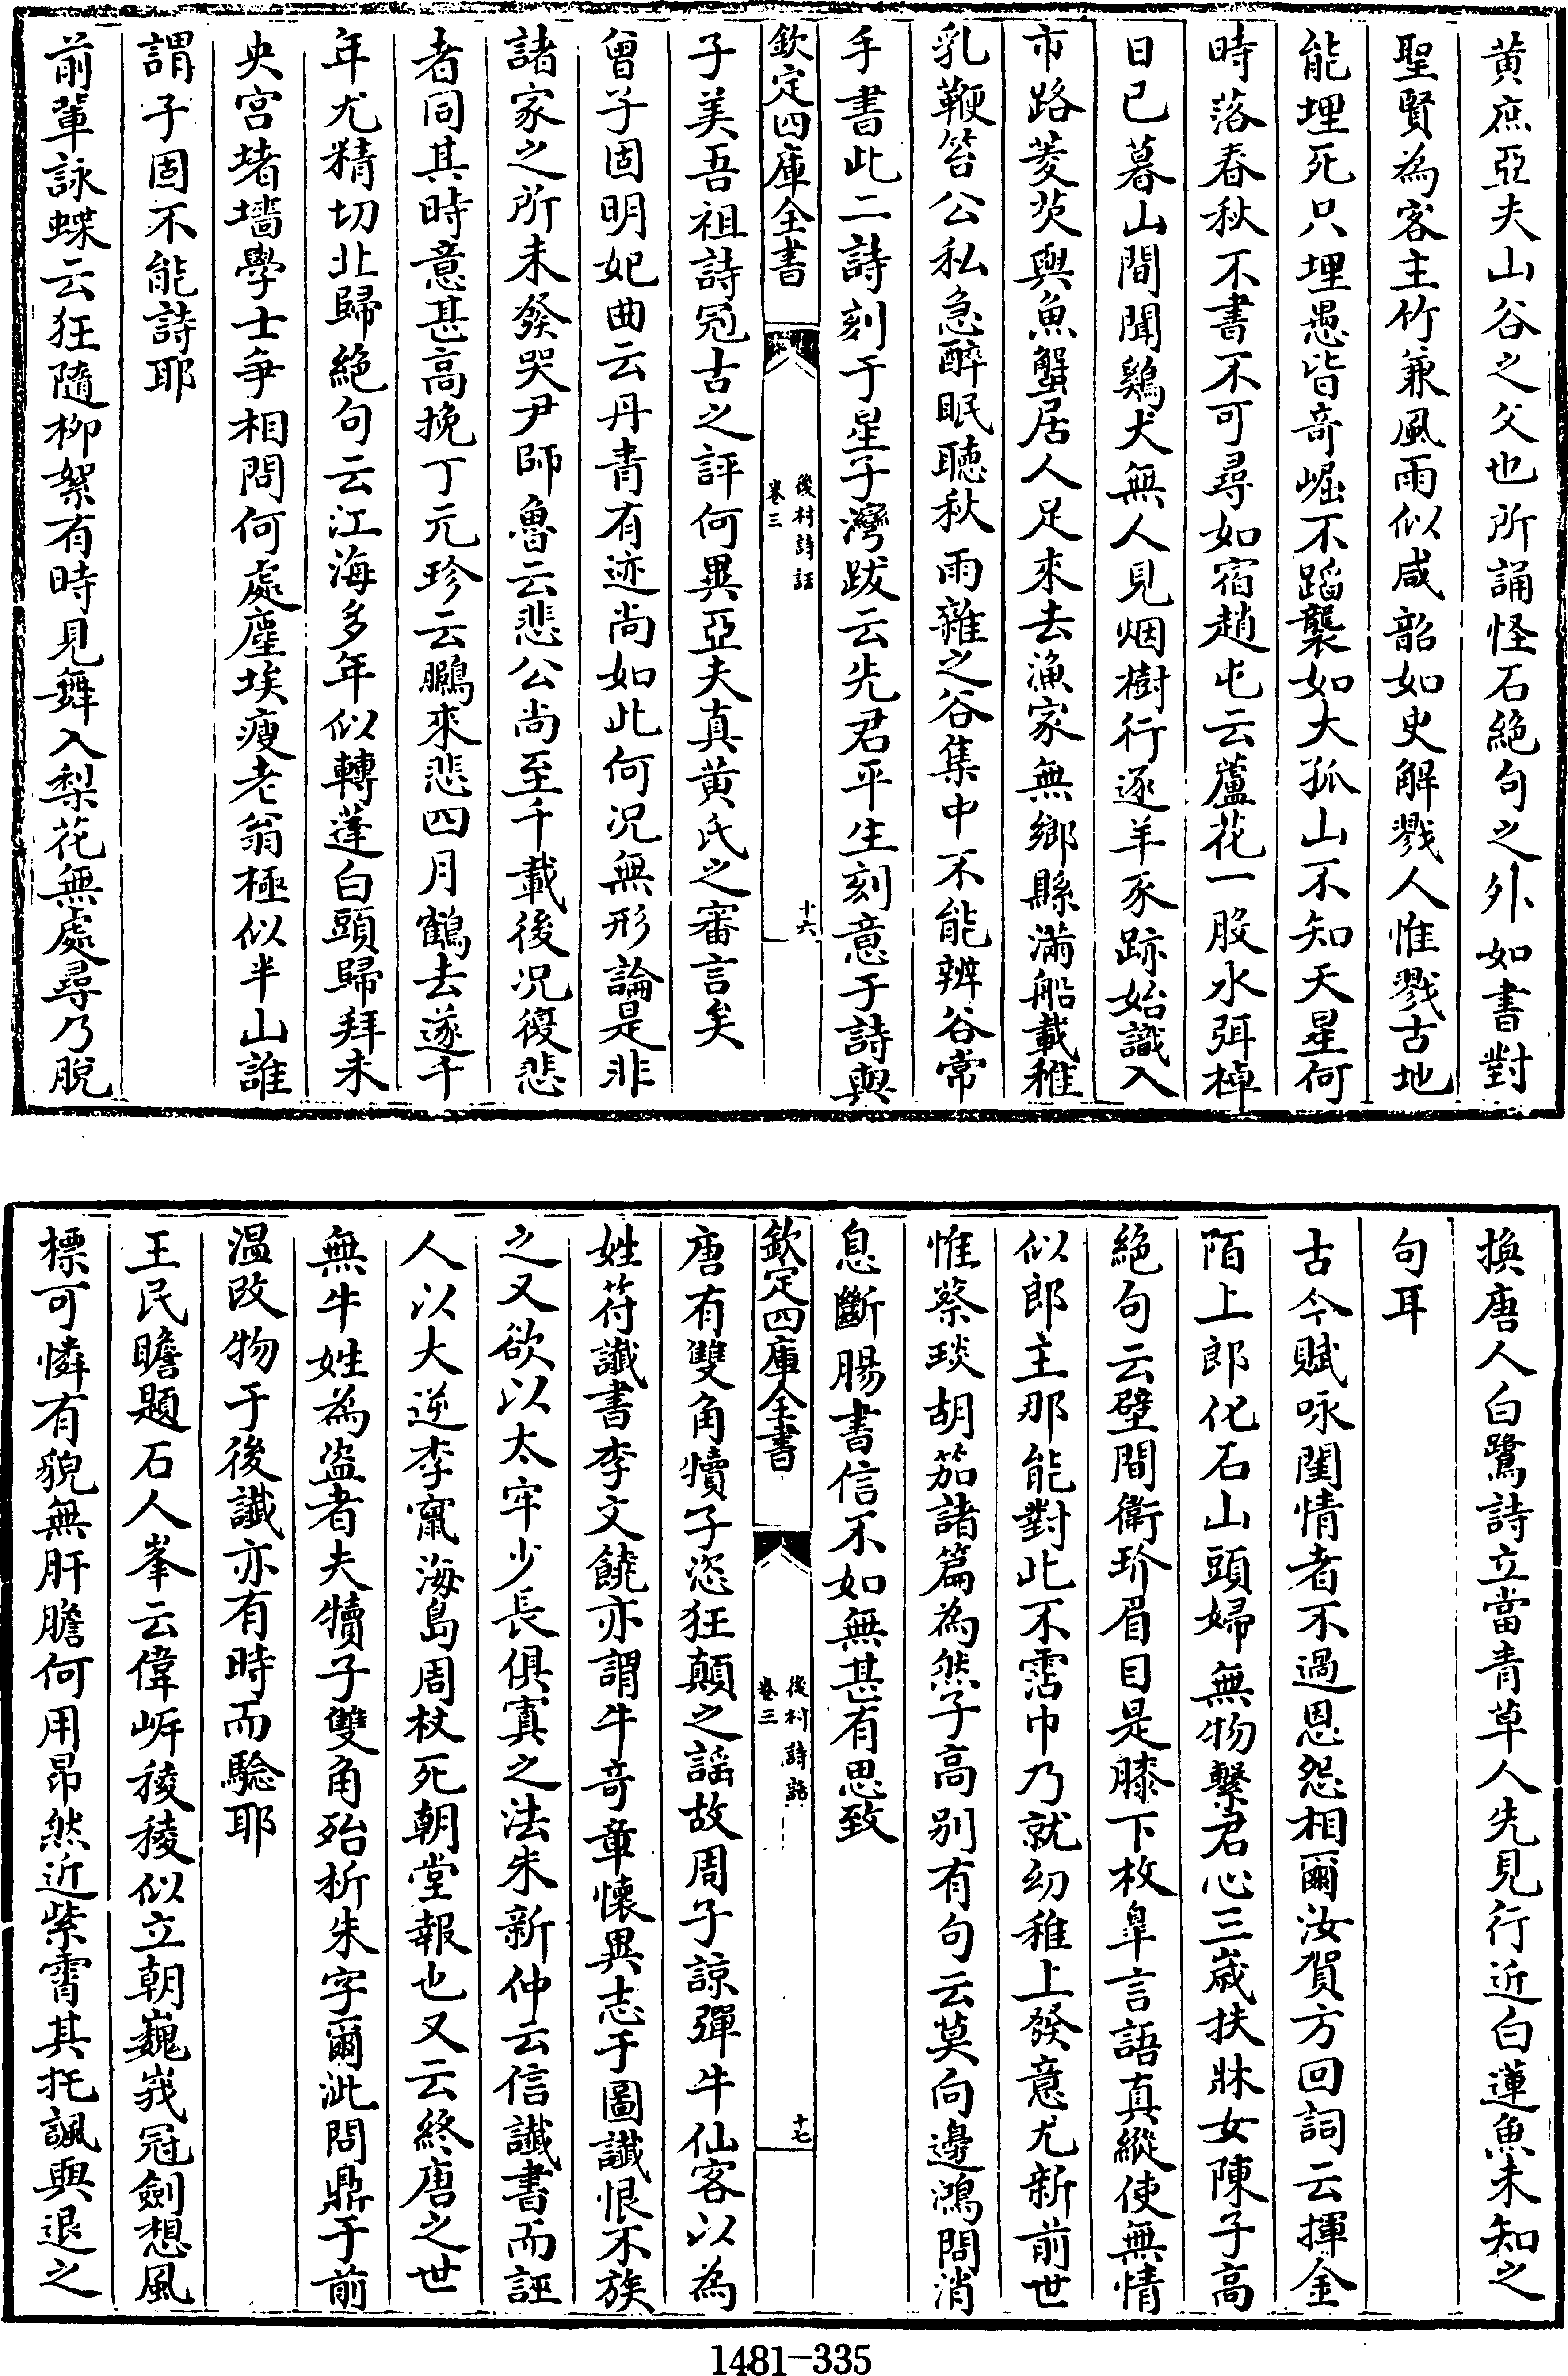 黄庶亞夫山谷之父也所誦怪石絶句之外如書對
聖賢為客主竹兼風雨似咸韶如史解戮人惟戮古地
能埋死只埋愚皆奇崛不蹈襲如大孤山不知天星何
時落春秋不書不可尋如宿趙屯云蘆花一股水弭棹
日已暮山間聞鷄犬無人見烟樹行逐羊豕跡始識入
市路菱芡與魚蟹居人足來去漁家無鄉縣滿船載稚
乳鞭笞公私急醉眠聽秋雨雜之谷集中不能辨谷常
手書此二詩刻于星子灣跋云先君平生刻意于詩與
欽定四庫全書
後村詩話
卷三
十六
子美吾祖詩冠古之評何異亞夫真黄氏之審言矣
曾子固明妃曲云丹青有迹尚如此何况無形論是非
諸家之所未發哭尹師魯云悲公尚至千載後况復悲
者同其時意甚高挽丁元珍云鵩來悲四月鶴去遂千
年尤精切北歸絶句云江海多年似轉蓬白頭歸拜未
央宫堵墻學士争相問何處塵埃瘦老翁極似半山誰
謂子固不能詩耶
前輩詠蝶云狂隨柳絮有時見舞入梨花無處尋乃脫
換唐人白鷺詩立當青草人先見行近白蓮魚未知之
句耳
古今賦咏閨情者不過恩怨相爾汝賀方回詞云揮金
陌上郎化石山頭婦無物繫君心三嵗扶牀女陳子高
絶句云壁間衛玠眉目是膝下枚臯言語真縱使無情
似郎主那能對此不霑巾乃就幼稚上發意尤新前世
惟蔡琰胡笳諸篇為然子高别有句云莫向邊鴻問消
息斷腸書信不如無甚有思致
欽定四庫全書
後村詩話
卷三
十七
唐有雙角犢子恣狂顛之謡故周子諒彈牛仙客以為
姓符讖書李文饒亦謂牛奇章懷異志于圖讖恨不族
之又欲以太牢少長俱寘之法朱新仲云信讖書而誣
人以大逆李竄海島周杖死朝堂報也又云終唐之世
無牛姓為盗者夫犢子雙角殆析朱字爾泚問鼎于前
温改物于後讖亦有時而驗耶
王民瞻題石人峯云偉岍稜稜似立朝巍峩冠劍想風
標可憐有貌無肝膽何用昂然近紫霄其托諷與退之
1481-335